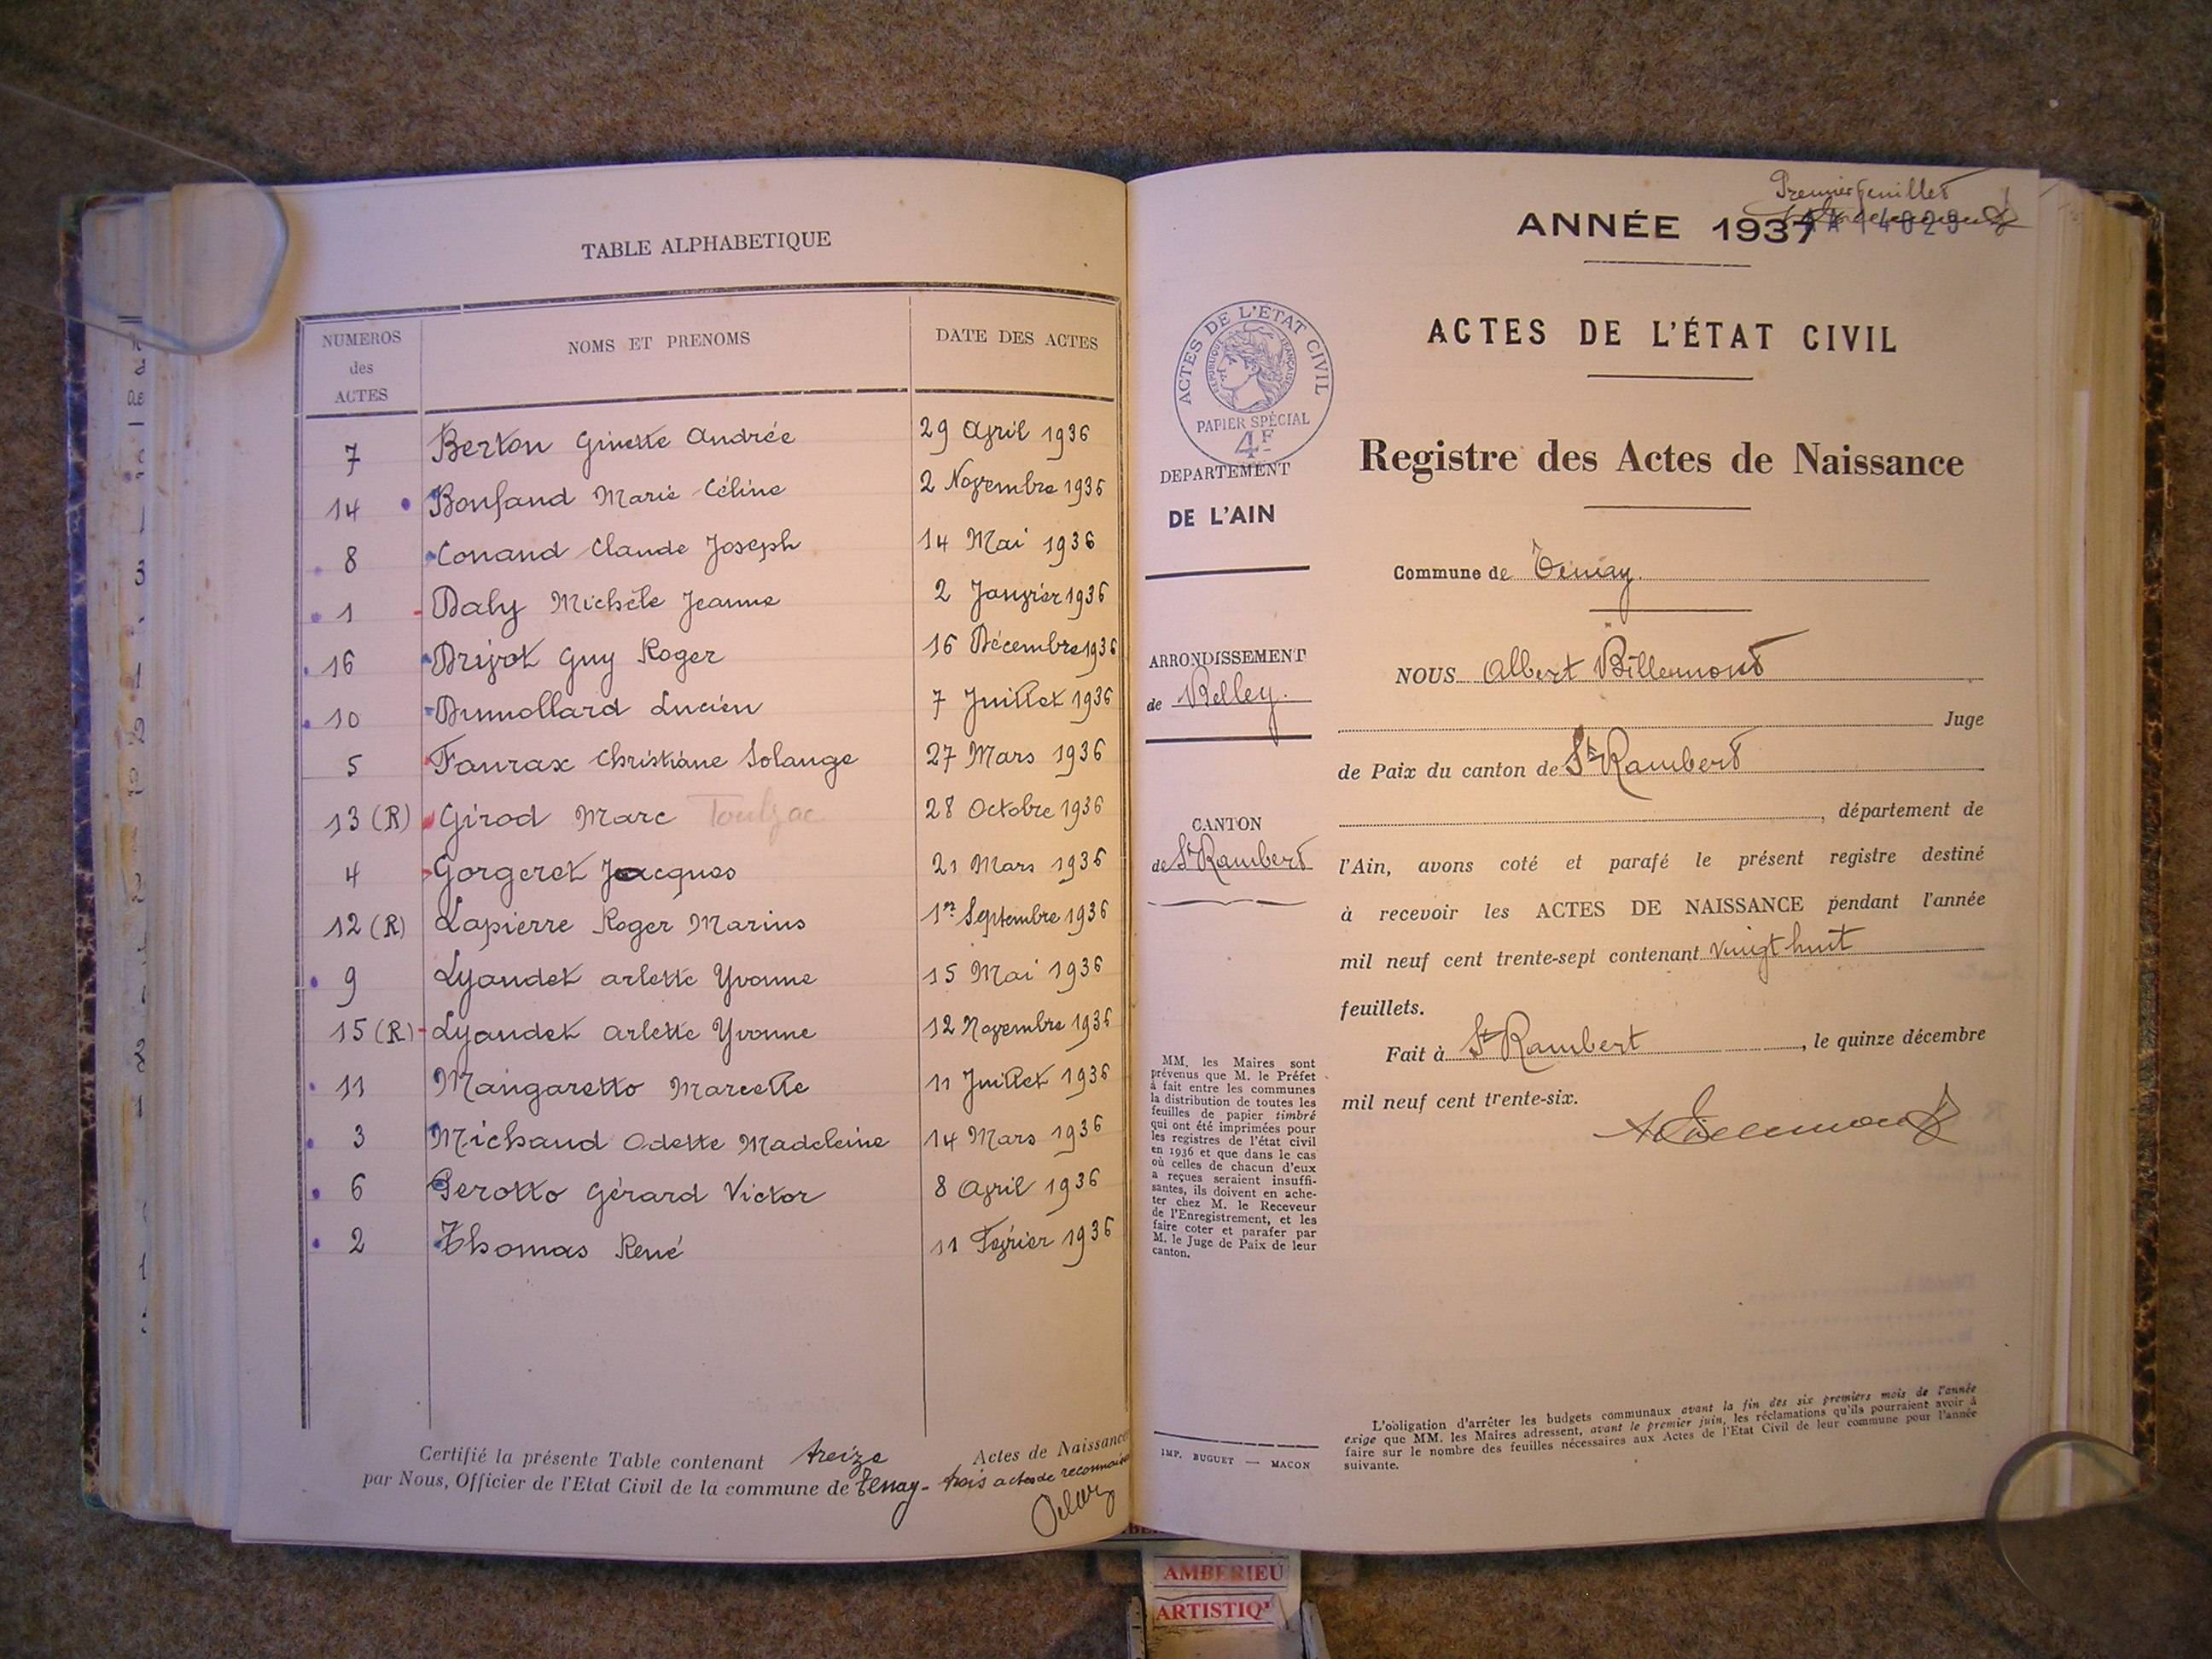 TABLE ALPHABETIQUE
NUMEROS
des
ACTES
NOMS ET PRENOMS
DATE DES ACTES
7 Berton Ginette Andrée 29 Avril 1936
14 Bonfand Marie Céline 2 Novembre 1936
8 Conand Claude Joseph 14 Mai 1936
1 Daly Michèle Jeanne 2 Janvier 1936
16 Drivot Guy Roger 16 Décembre 1936
10 Dumollard Lucien 7 Juillet 1936
5 Faurax Christiane Solange 27 Mars 1936
13 (R) Girod Marc Toulzac 28 Octobre 1936
4 Gorgeret Jacques 21 Mars 1936
12 (R) Lapierre Roger Marius 1er Septembre 1936
9 Lyaudet Arlette Yvonne 15 Mai 1936
15 (R) Lyaudet Arlette Yvonne 12 Novembre 1936
11 Maugaretto Marcelle 11 Juillet 1936
3 Michaud Odette Madeleine 14 Mars 1936
6 Perotto Gérard Victor 8 Avril 1936
2 Thomas René 11 Février 1936
Certifié la présente Table contenant treize Actes de Naissance
par Nous, Officier de l'Etat Civil de la commune de Tenay - trois actes de
Premier feuillet
ANNÉE 1937
14029
ACTES DE L'ÉTAT CIVIL
RÉPUBLIQUE FRANÇAISE
PAPIER SPÉCIAL
4F
ACTES DE L'ÉTAT CIVIL
Registre des Actes de Naissance
DEPARTEMENT
DE L'AIN
Commune de Tenay.
ARRONDISSEMENT
de Belley.
CANTON
de St Rambert
NOUS Albert Billemont
Juge
de Paix du canton de St Rambert
, département de
l'Ain, avons coté et parafé le présent registre destiné
à recevoir les ACTES DE NAISSANCE pendant l'année
mil neuf cent trente-sept contenant vingt huit
feuillets.
Fait à St Rambert , le quinze décembre
mil neuf cent trente-six.
MM. les Maires sont
prévenus que M. le Préfet
à fait entre les communes
la distribution de toutes les
feuilles de papier timbré
qui ont été imprimées pour
les registres de l'état civil
en 1936 et que dans le cas
où celles de chacun d'eux
a reçues seraient insuffi-
santes, ils doivent en ache-
ter chez M. le Receveur
de l'Enregistrement, et les
faire coter et parafer par
M. le Juge de Paix de leur
canton.
IMP. BUGUET — MACON
L'obligation d'arrêter les budgets communaux avant la fin des six premiers mois de l'année
exige que MM. les Maires adressent, avant le premier juin, les réclamations qu'ils pourraient avoir à
faire sur le nombre des feuilles nécessaires aux Actes de l'Etat Civil de leur commune pour l'année
suivante.
AMBERIEU
ARTISTIQ'